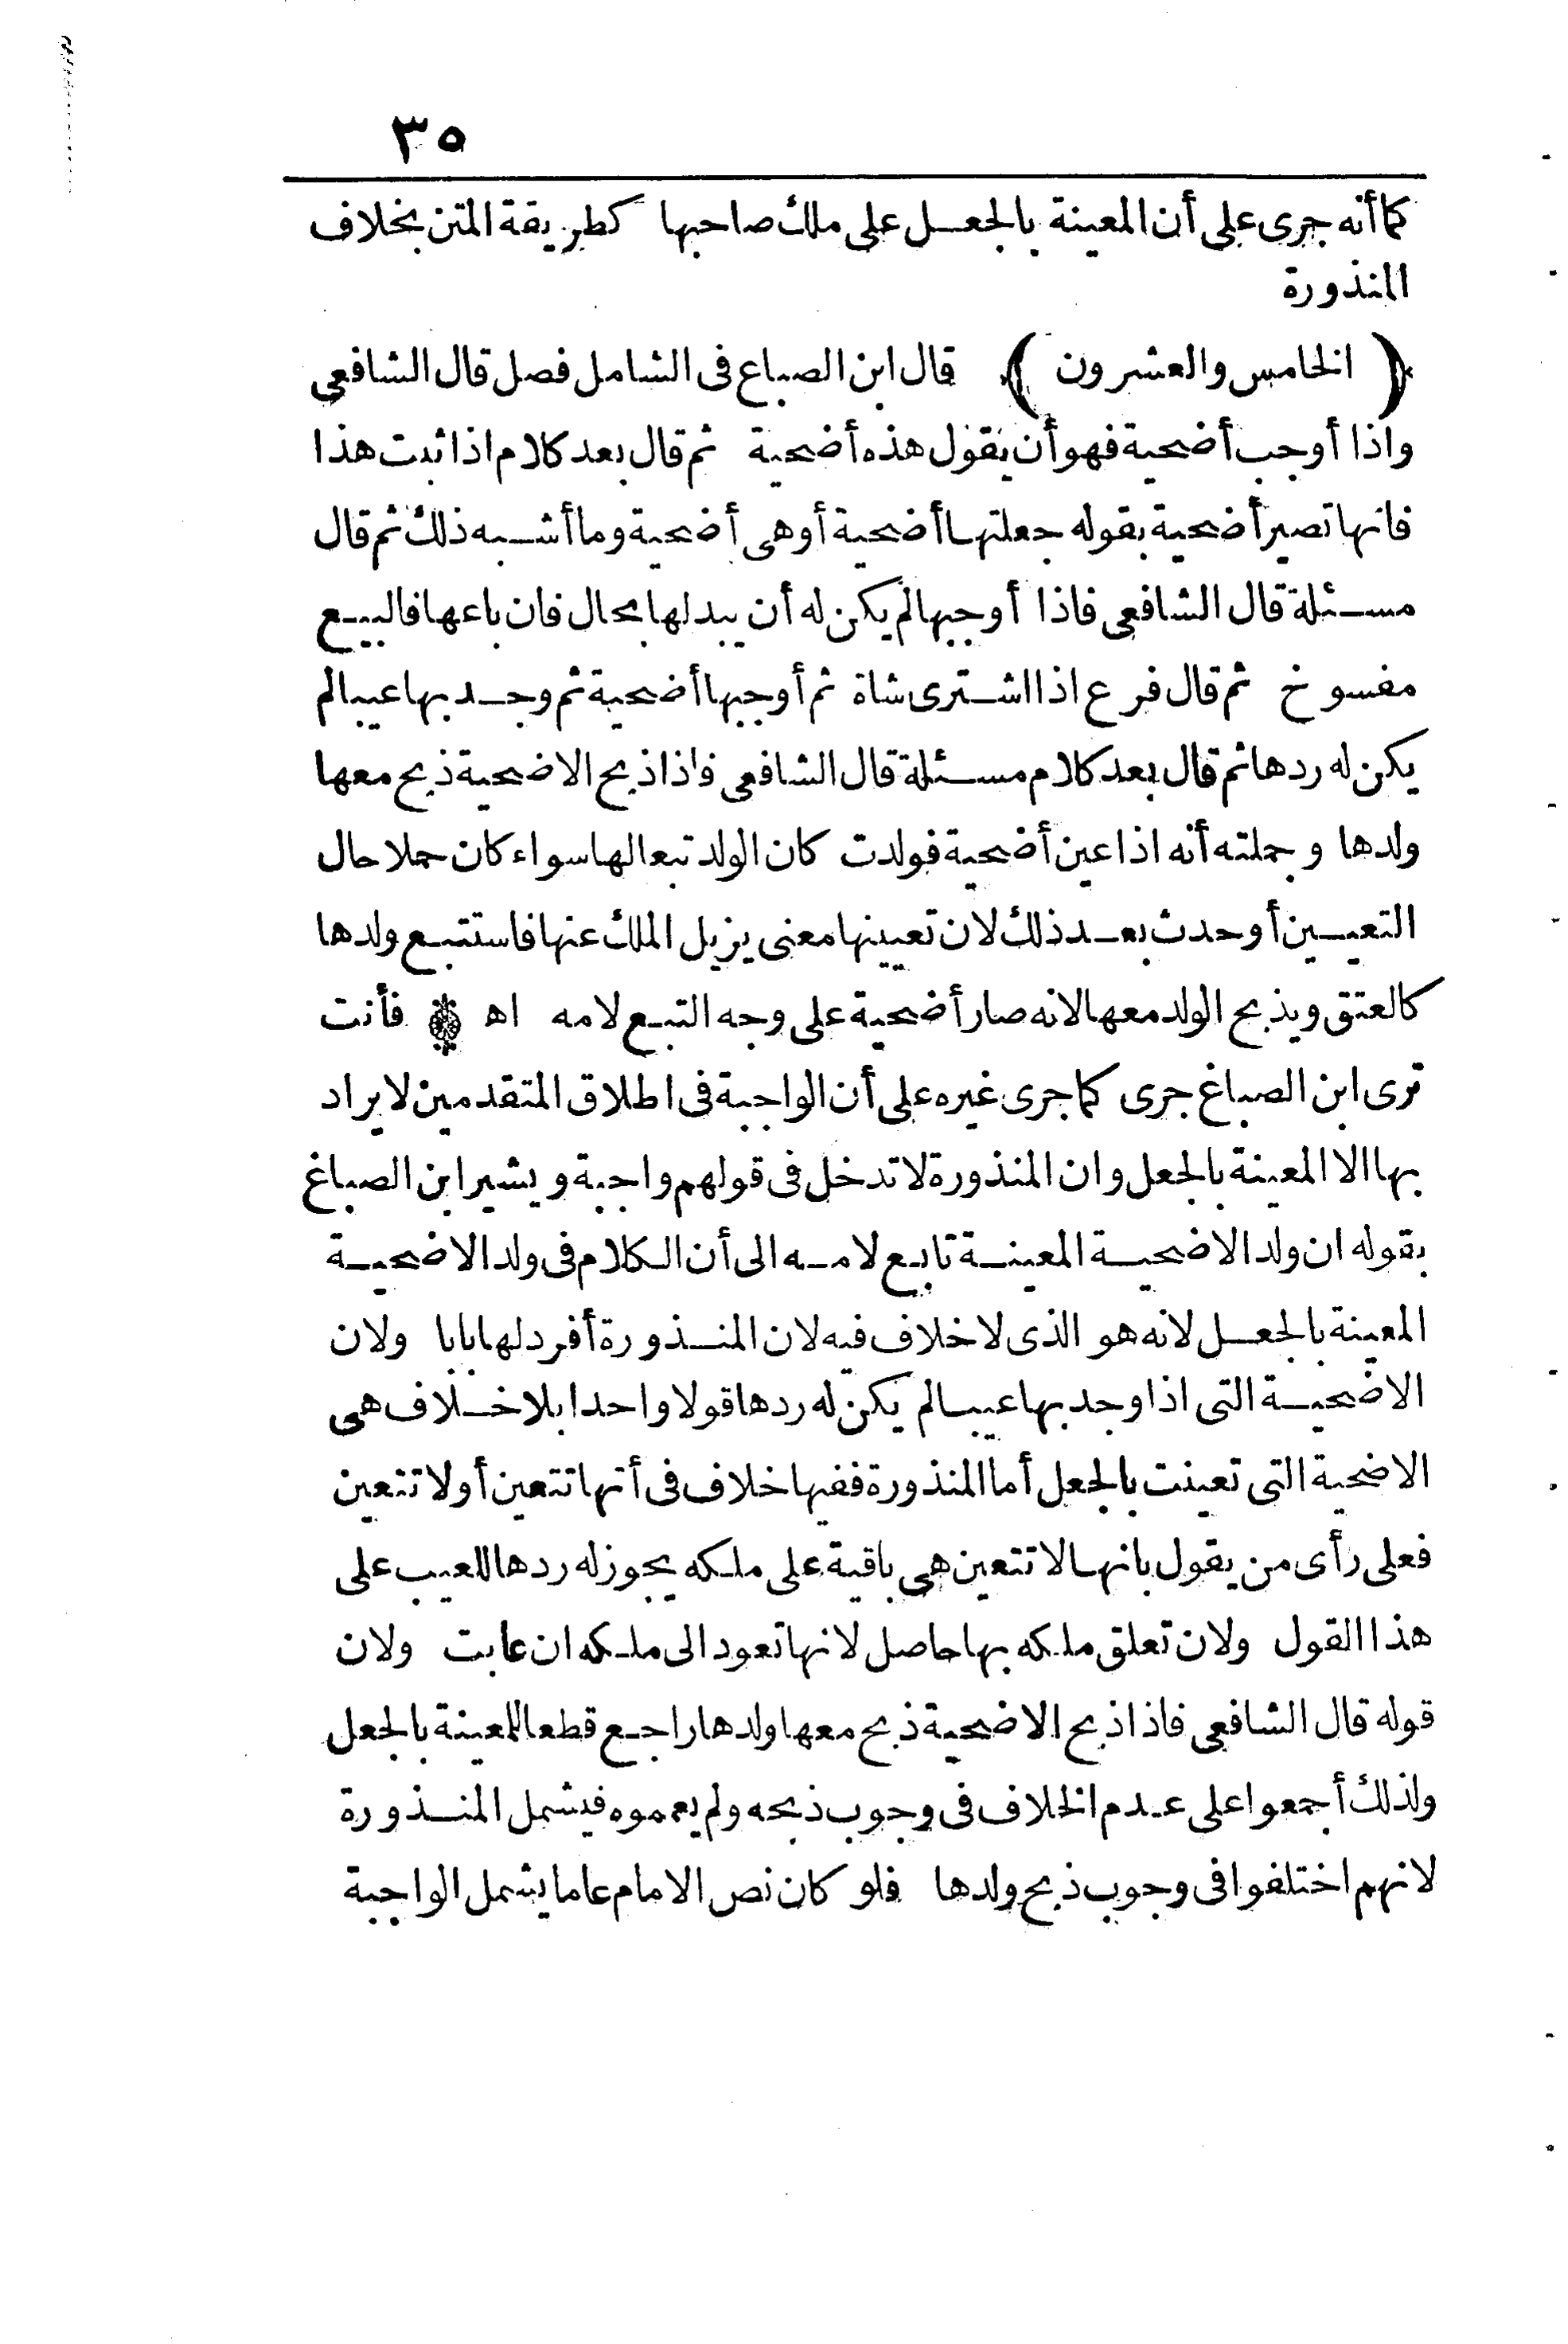 ٣٥
كما أنه جرى على أن المعينة بالجعل على ملك صاحبها كطريقة المتن بخلاف
المنذورة
﴿ الخامس والعشرون ﴾ قال ابن الصباغ فى الشامل فصل قال الشافعى
واذا أوجب أضحية فهو أن يقول هذه أضحية ثم قال بعد كلام اذا ثبت هذا
فانها تصير أضحية بقوله جعلتها أضحية أو هى أضحية وما أشبه ذلك ثم قال
مسئلة قال الشافعى فاذا أوجبها لم يكن له أن يبدلها بحال فان باعها فالبيع
مفسوخ ثم قال فرع اذا اشترى شاة ثم أوجبها أضحية ثم وجد بها عيبا لم
يكن له ردها ثم قال بعد كلام مسئلة قال الشافعى فاذا ذبح الاضحية ذبح معها
ولدها وجملته أنه اذا عين أضحية فولدت كان الولد تبعا لها سواء كان حملا حال
التعيين أو حدث بعد ذلك لان تعيينها معنى يزيل الملك عنها فاستتبع ولدها
كالعتق ويذبح الولد معها لانه صار أضحية على وجه التبع لامه اه فأنت
ترى ابن الصباغ جرى كما جرى غيره على أن الواجبة فى اطلاق المتقدمين لا يراد
بها الا المعينة بالجعل وان المنذورة لا تدخل فى قولهم واجبة ويشير ابن الصباغ
بقوله ان ولد الاضحية المعينة تابع لامه الى أن الكلام فى ولد الاضحية
المعينة بالجعل لانه هو الذى لا خلاف فيه لان المنذورة أفرد لها بابا ولان
الاضحية التى اذا وجد بها عيبا لم يكن له ردها قولا واحدا بلا خلاف هى
الاضحية التى تعينت بالجعل أما المنذورة ففيها خلاف فى أنها تتعين أولا تتعين
فعلى رأى من يقول بانها لا تتعين هى باقية على ملكه يجوز له ردها للعيب على
هذا القول ولان تعلق ملكه بها حاصل لانها تعود الى ملكه ان عابت ولان
قوله قال الشافعى فاذا ذبح الاضحية ذبح معها ولدها راجع قطعا للمعينة بالجعل
ولذلك أجمعوا على عدم الخلاف فى وجوب ذبحه ولم يعمموه فيشمل المنذورة
لانهم اختلفوا فى وجوب ذبح ولدها فلو كان نص الامام عاما يشمل الواجبة